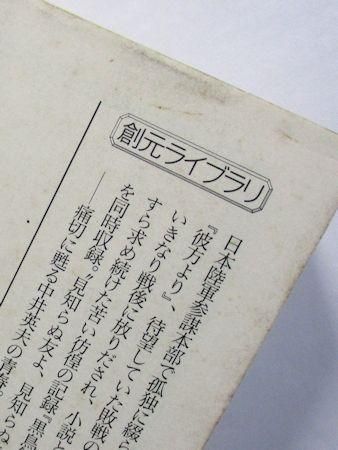 創元ライブラリ
日本陸軍参謀本部で孤独に綴ら
『彼方より』、待望していた敗戦の
いきなり戦後に放りだされ、小説と
すら求め続けた苦い彷徨の記録『黒鳥
を同時収録。〝見知らぬ友よ、見知らぬ
――痛切に甦る中井英夫の青春。